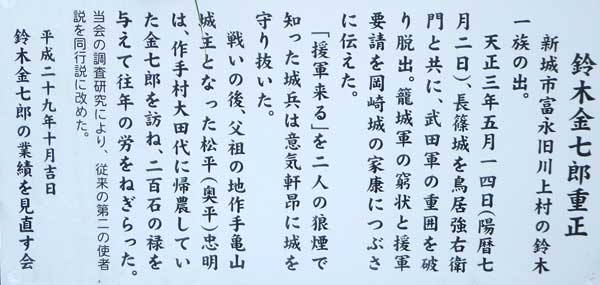 鈴木金七郎重正
新城市富永旧川上村の鈴木
一族の出。
天正三年五月一四日(陽暦七
月二日)、長篠城を鳥居強右衛
門と共に、武田軍の重囲を破
り脱出。籠城軍の窮状と援軍
要請を岡崎城の家康につぶさ
に伝えた。
「援軍来る」を二人の狼煙で
知った城兵は意気軒昂に城を
守り抜いた。
戦いの後、父祖の地作手亀山
城主となった松平(奥平)忠明
は、作手村大田代に帰農してい
た金七郎を訪ね、二百石の禄を
与えて往年の労をねぎらった。
当会の調査研究により、従来の第二の使者
説を同行説に改めた。
平成二十九年十月吉日
鈴木金七郎の業績を見直す会